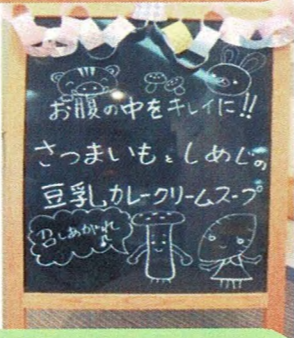 お腹の中をキレイに!!
さつまいもとしめじの
豆乳カレークリームスープ
召しあがれ